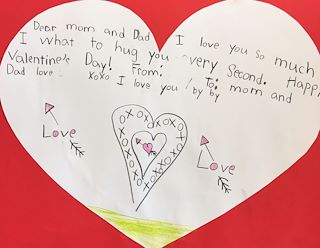 Dear mom and Dad I love you so much
I what to hug you every Second. Happy
Valentine's Day! From: To: mom and
Dad love: xoxo I love you! by by
Love
Love